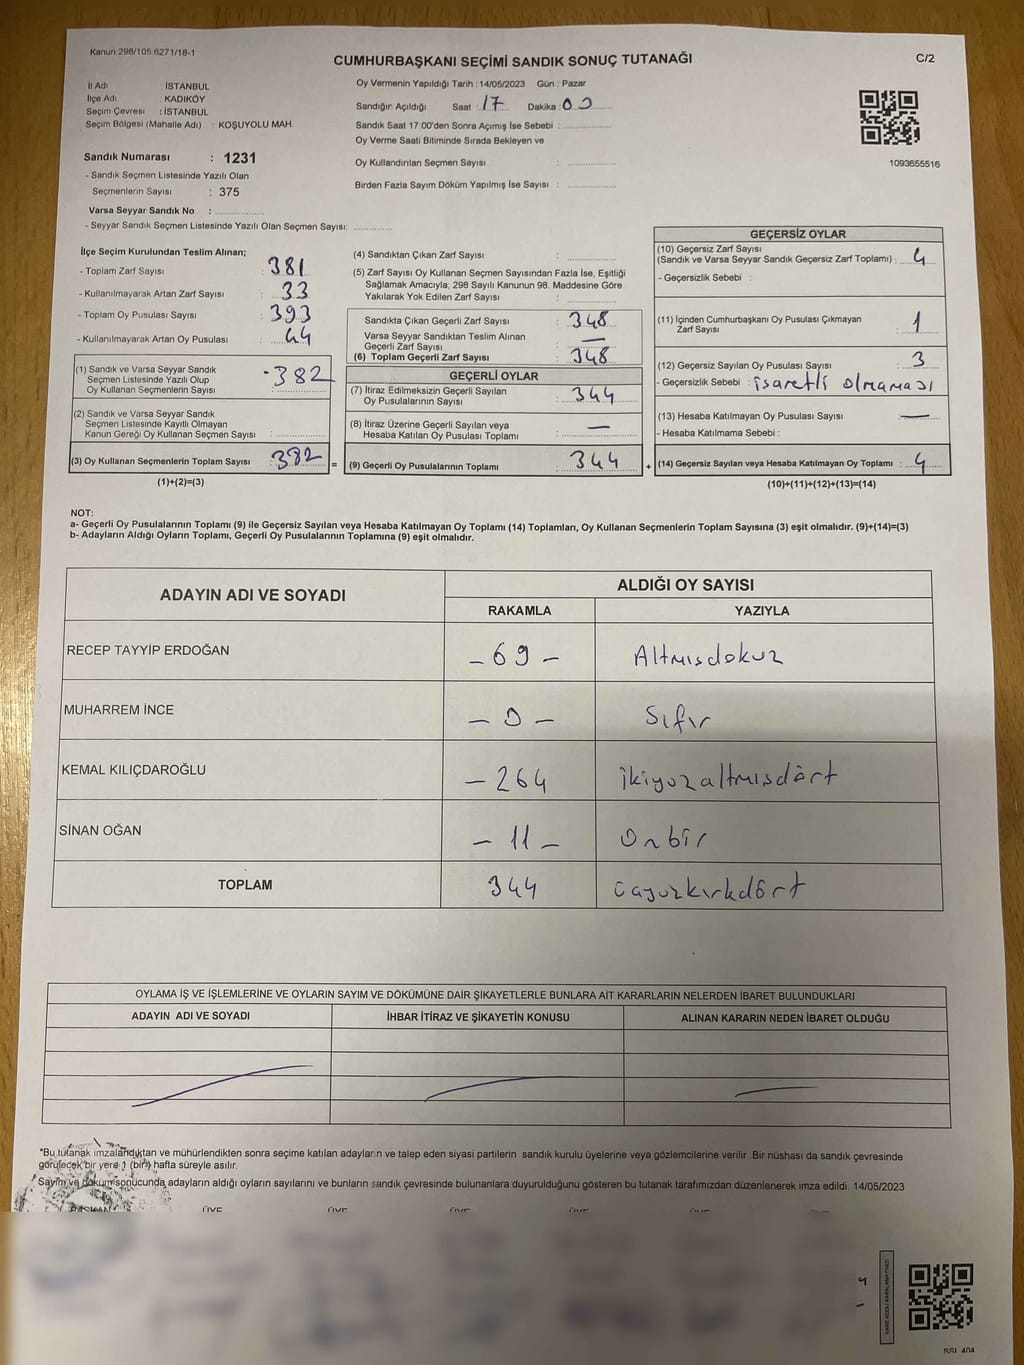 Kanun 298/105 6271/18-1
CUMHURBAŞKANI SEÇİMİ SANDIK SONUÇ TUTANAĞI
C/2
İl Adı : İSTANBUL
İlçe Adı : KADIKÖY
Seçim Çevresi : İSTANBUL
Seçim Bölgesi (Mahalle Adı) : KOŞUYOLU MAH.
Sandık Numarası : 1231
- Sandık Seçmen Listesinde Yazılı Olan
Seçmenlerin Sayısı : 375
Varsa Seyyar Sandık No :
- Seyyar Sandık Seçmen Listesinde Yazılı Olan Seçmen Sayısı:
Oy Vermenin Yapıldığı Tarih : 14/05/2023 Gün : Pazar
Sandığın Açıldığı Saat : 17 Dakika : 00
Sandık Saat 17:00'den Sonra Açımış İse Sebebi :
Oy Verme Saati Bitiminde Sırada Bekleyen ve
Oy Kullandırılan Seçmen Sayısı :
Birden Fazla Sayım Döküm Yapılmış İse Sayısı :
1093655516
İlçe Seçim Kurulundan Teslim Alınan;
- Toplam Zarf Sayısı : 381
- Kullanılmayarak Artan Zarf Sayısı : 33
- Toplam Oy Pusulası Sayısı : 393
- Kullanılmayarak Artan Oy Pusulası : 44
(1) Sandık ve Varsa Seyyar Sandık
Seçmen Listesinde Yazılı Olup
Oy Kullanan Seçmenlerin Sayısı : 382
(2) Sandık ve Varsa Seyyar Sandık
Seçmen Listesinde Kayıtlı Olmayan
Kanun Gereği Oy Kullanan Seçmen Sayısı :
(3) Oy Kullanan Seçmenlerin Toplam Sayısı : 382
(1)+(2)=(3)
(4) Sandıktan Çıkan Zarf Sayısı :
(5) Zarf Sayısı Oy Kullanan Seçmen Sayısından Fazla İse, Eşitliği
Sağlamak Amacıyla, 298 Sayılı Kanunun 98. Maddesine Göre
Yakılarak Yok Edilen Zarf Sayısı :
Sandıkta Çıkan Geçerli Zarf Sayısı : 348
Varsa Seyyar Sandıktan Teslim Alınan
Geçerli Zarf Sayısı : —
(6) Toplam Geçerli Zarf Sayısı : 348
GEÇERLİ OYLAR
(7) İtiraz Edilmeksizin Geçerli Sayılan
Oy Pusulalarının Sayısı : 344
(8) İtiraz Üzerine Geçerli Sayılan veya
Hesaba Katılan Oy Pusulası Toplamı : —
= (9) Geçerli Oy Pusulalarının Toplamı : 344
GEÇERSİZ OYLAR
(10) Geçersiz Zarf Sayısı
(Sandık ve Varsa Seyyar Sandık Geçersiz Zarf Toplamı) : 4
- Geçersizlik Sebebi :
(11) İçinden Cumhurbaşkanı Oy Pusulası Çıkmayan
Zarf Sayısı : 1
(12) Geçersiz Sayılan Oy Pusulası Sayısı : 3
- Geçersizlik Sebebi : işaretli olmaması
(13) Hesaba Katılmayan Oy Pusulası Sayısı : —
- Hesaba Katılmama Sebebi :
+ (14) Geçersiz Sayılan veya Hesaba Katılmayan Oy Toplamı : 4
(10)+(11)+(12)+(13)=(14)
NOT:
a- Geçerli Oy Pusulalarının Toplamı (9) ile Geçersiz Sayılan veya Hesaba Katılmayan Oy Toplamı (14) Toplamları, Oy Kullanan Seçmenlerin Toplam Sayısına (3) eşit olmalıdır. (9)+(14)=(3)
b- Adayların Aldığı Oyların Toplamı, Geçerli Oy Pusulalarının Toplamına (9) eşit olmalıdır.
ADAYIN ADI VE SOYADI
ALDIĞI OY SAYISI
RAKAMLA YAZIYLA
RECEP TAYYİP ERDOĞAN - 69 - Altmısdokuz
MUHARREM İNCE - 0 - Sıfır
KEMAL KILIÇDAROĞLU - 264 ikiyüzaltmısdört
SİNAN OĞAN - 11 - Onbir
TOPLAM 344 üçyüzkırkdört
OYLAMA İŞ VE İŞLEMLERİNE VE OYLARIN SAYIM VE DÖKÜMÜNE DAİR ŞİKAYETLERLE BUNLARA AİT KARARLARIN NELERDEN İBARET BULUNDUKLARI
ADAYIN ADI VE SOYADI İHBAR İTİRAZ VE ŞİKAYETİN KONUSU ALINAN KARARIN NEDEN İBARET OLDUĞU
*Bu tutanak imzalandıktan ve mühürlendikten sonra seçime katılan adayların ve talep eden siyasi partilerin sandık kurulu üyelerine veya gözlemcilerine verilir .Bir nüshası da sandık çevresinde
görülecek bir yere 1 (bir) hafta süreyle asılır.
Sayım ve döküm sonucunda adayların aldığı oyların sayılarını ve bunların sandık çevresinde bulunanlara duyurulduğunu gösteren bu tutanak tarafımızdan düzenlenerek imza edildi. 14/05/2023
BAŞKAN ÜYE ÜYE ÜYE ÜYE ÜYE ÜYE